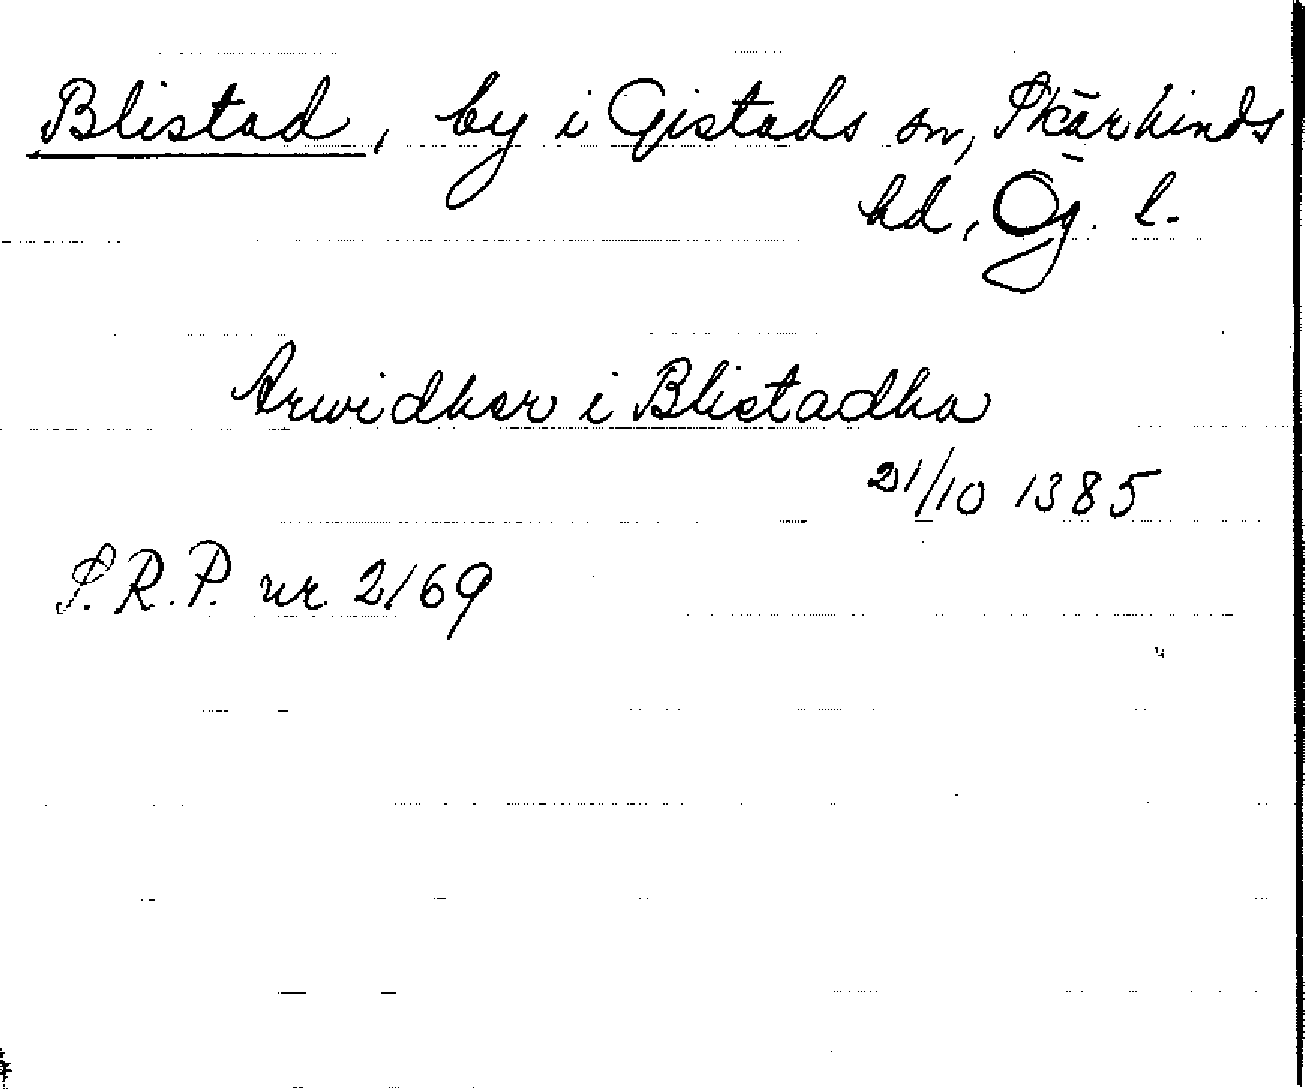 Blistad, by i Gistads sn, Skärkinds
hd, Ög. l.
Arwidher i Blistadha
21/10 1385
S.R.P. nr 2169